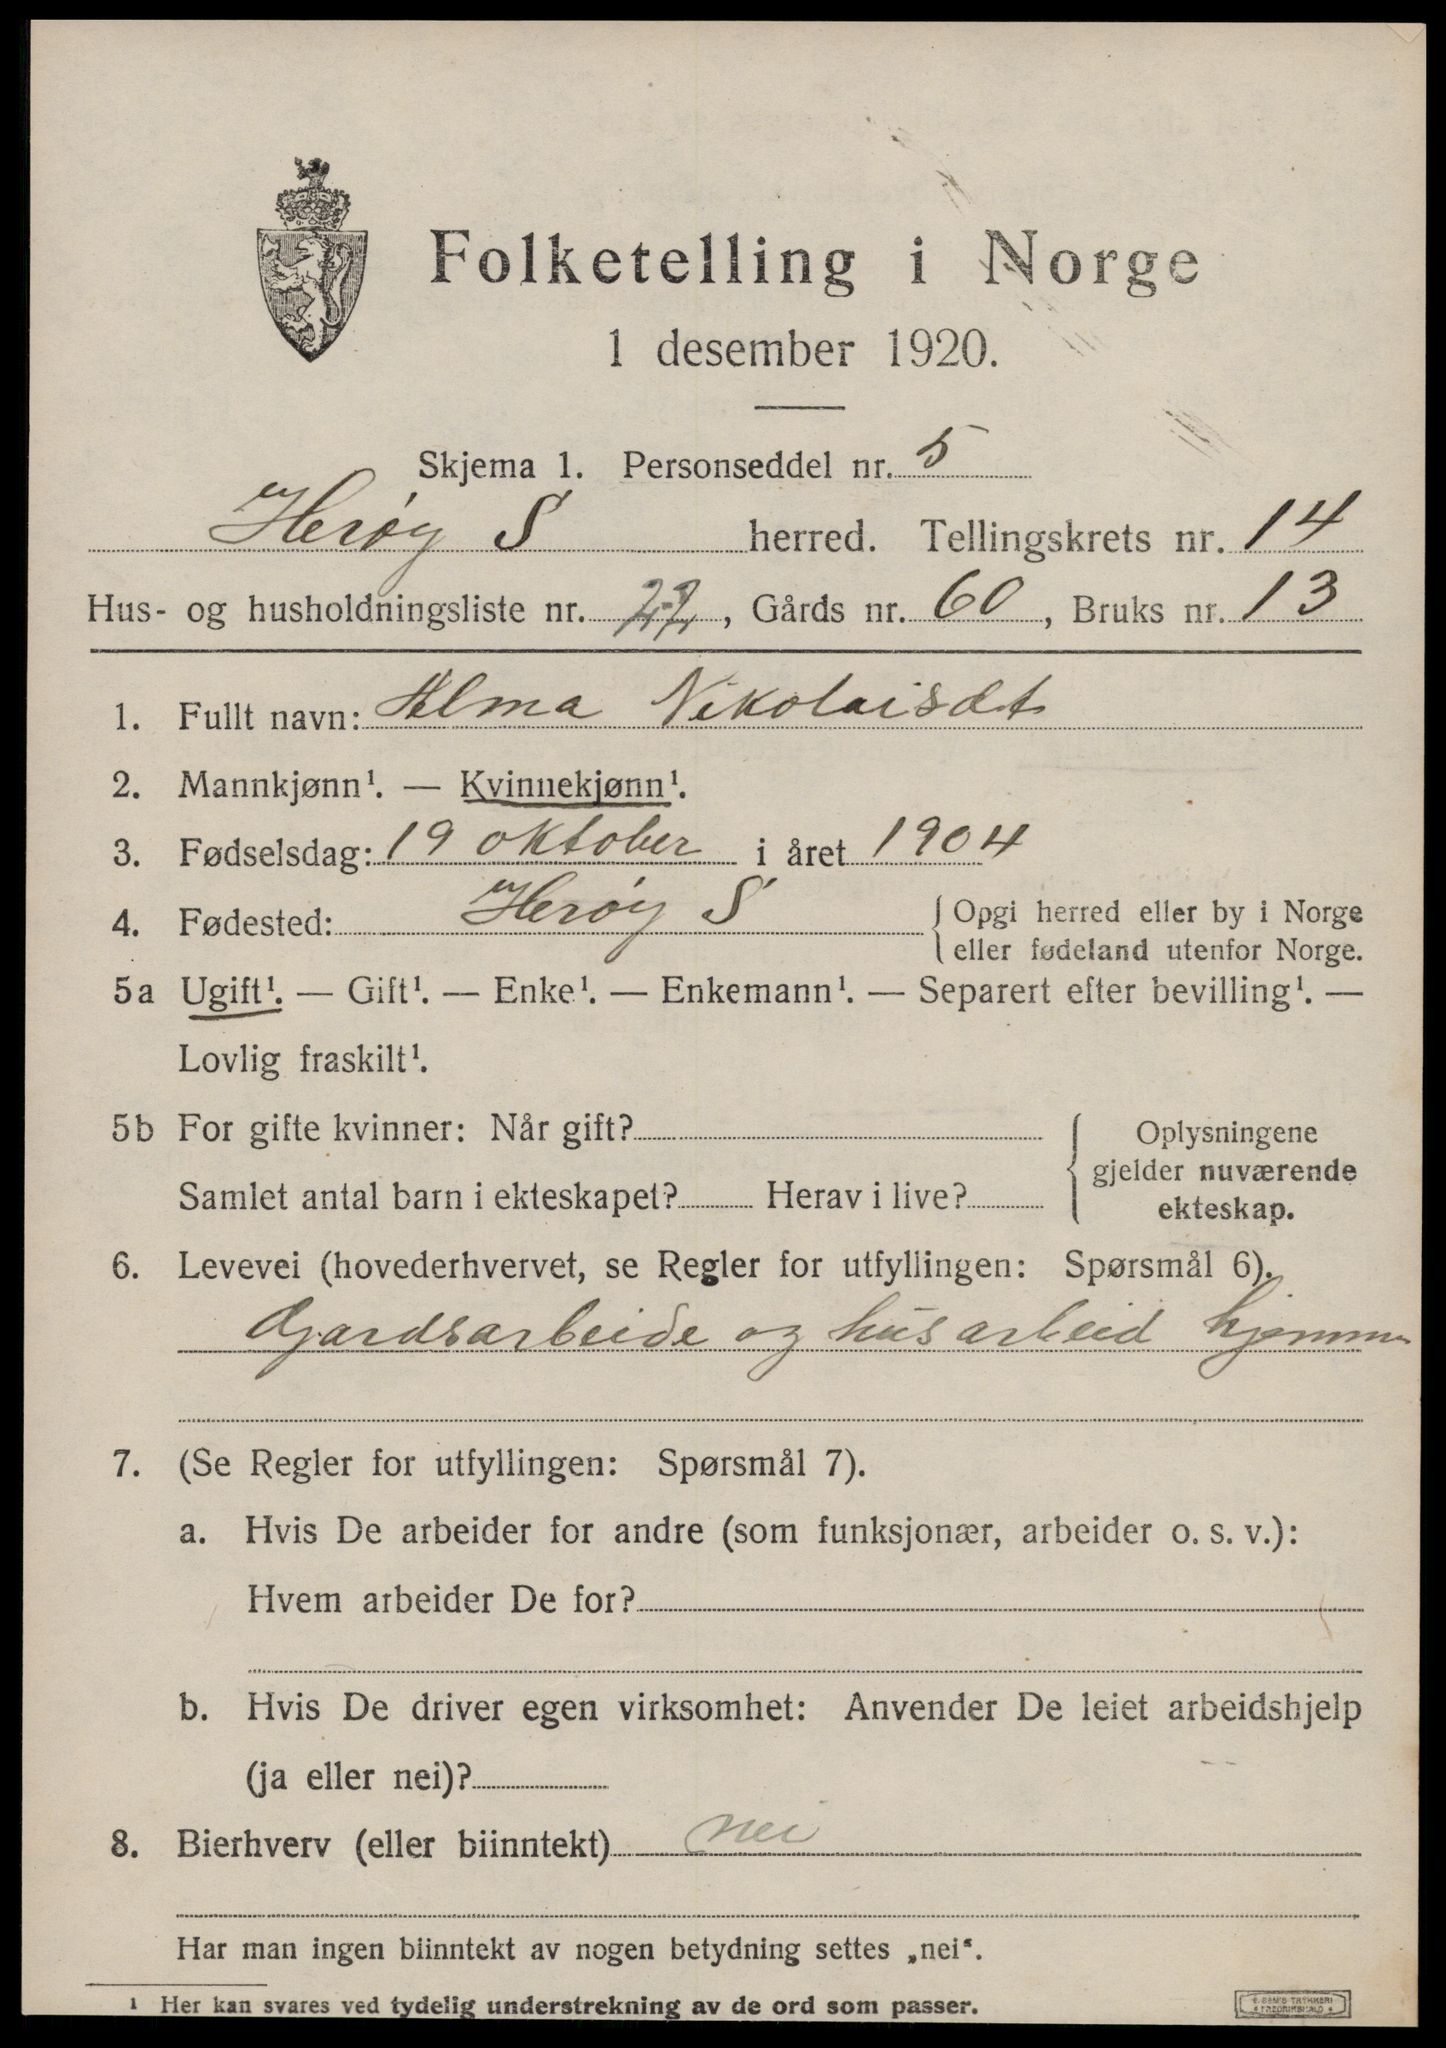 Folketelling i Norge
1 desember 1920.
Skjema 1. Personseddel nr. 5
Herøy S herred. Tellingskrets nr. 14
Hus- og husholdningsliste nr. , Gårds nr. 60, Bruks nr. 13
1. Fullt navn: Alma Nikolaisdt
2. Mannkjønn¹. — Kvinnekjønn¹.
3. Fødselsdag: 19 oktober i året 1904
4. Fødested: Herøy S { Opgi herred eller by i Norge
eller fødeland utenfor Norge.
5a Ugift¹. — Gift¹. — Enke¹. — Enkemann¹. — Separert efter bevilling¹. —
Lovlig fraskilt¹.
5b For gifte kvinner: Når gift?
Samlet antal barn i ekteskapet? Herav i live?
Oplysningene
gjelder nuværende
ekteskap.
6. Levevei (hovederhvervet, se Regler for utfyllingen: Spørsmål 6).
Gardsarbeide og husarbeid hjemme
7. (Se Regler for utfyllingen: Spørsmål 7).
a. Hvis De arbeider for andre (som funksjonær, arbeider o. s. v.):
Hvem arbeider De for?
b. Hvis De driver egen virksomhet: Anvender De leiet arbeidshjelp
(ja eller nei)?
8. Bierhverv (eller biinntekt) nei
Har man ingen biinntekt av nogen betydning settes „nei“.
¹ Her kan svares ved tydelig understrekning av de ord som passer.